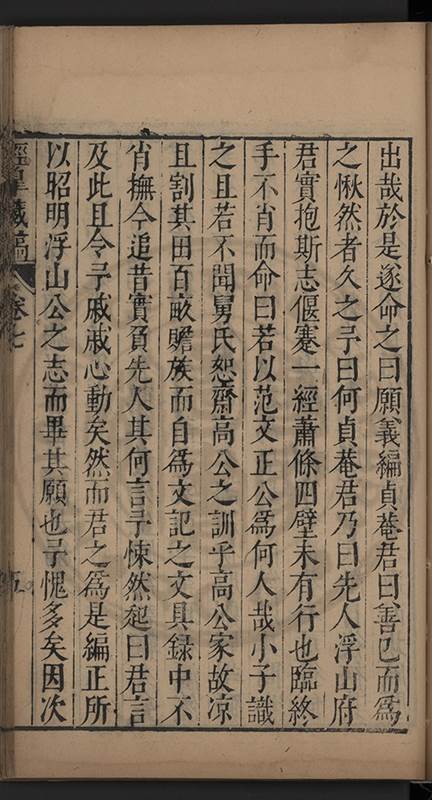 出哉於是遂命之曰願義編貞菴君曰善已而爲
之愀然者久之予曰何貞菴君乃曰先人浮山府
君實抱斯志偃蹇一經蕭條四壁未有行也臨終
手不肖而命曰若以范文正公爲何人哉小子識
之且若不聞舅氏恕齋高公之訓乎高公家故凉
且割其田百畝贍族而自爲文記之文具録中不
肖撫今追昔實負先人其何言予悚然起曰君言
及此且令予戚戚心動矣然而君之爲是編正所
以昭明浮山公之志而畢其願也予愧多矣因次
經皐藏稿
卷七
五